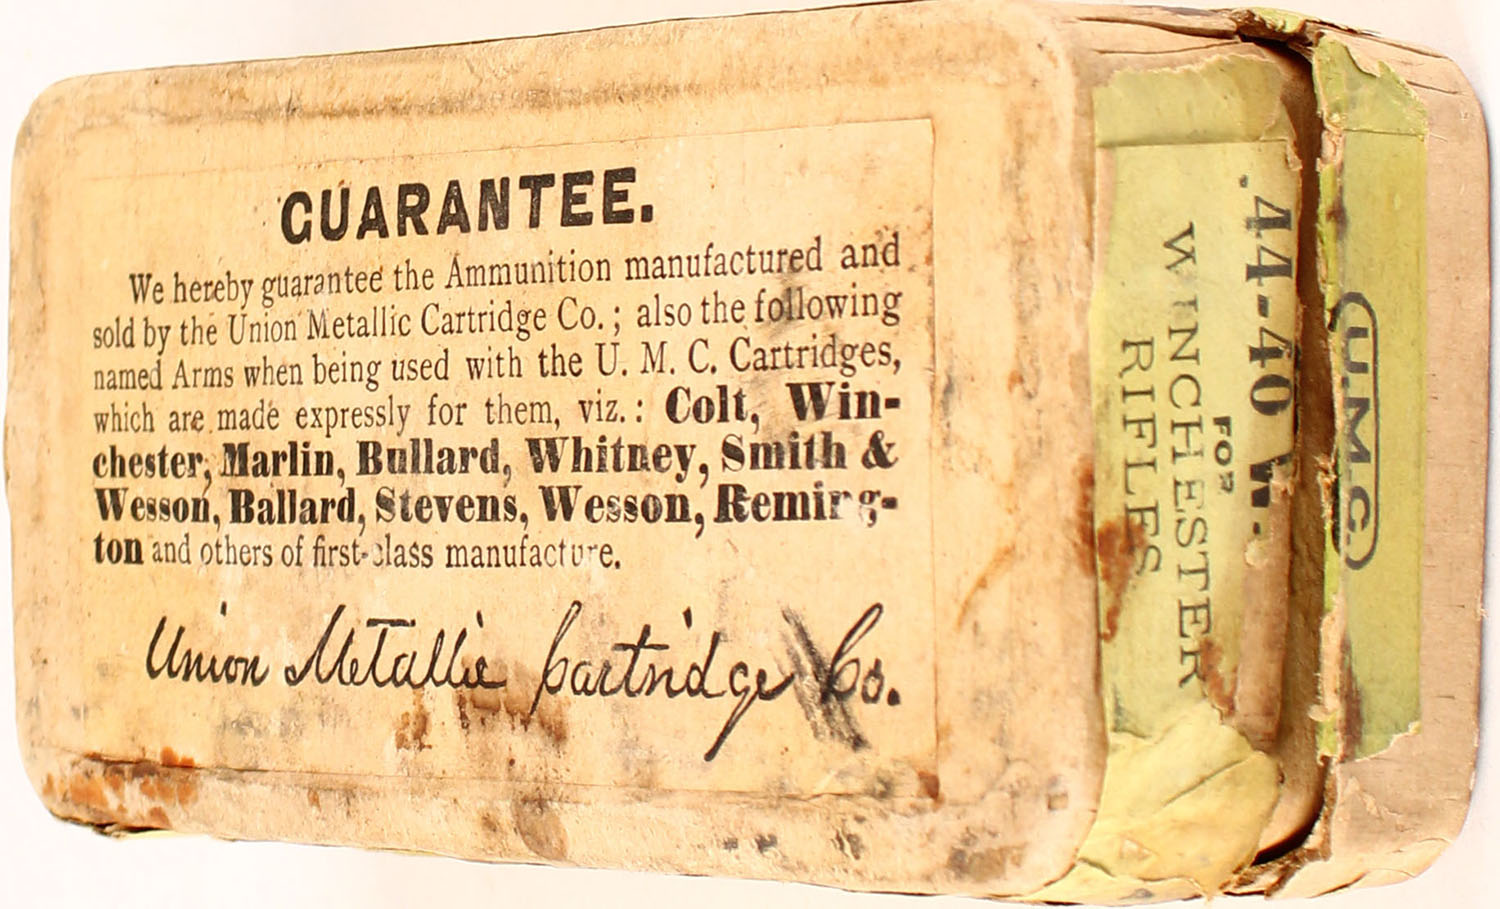 GUARANTEE.
We hereby guarantee the Ammunition manufactured and
sold by the Union Metallic Cartridge Co. ; also the following
named Arms when being used with the U. M. C. Cartridges,
which are made expressly for them, viz. : Colt, Win-
chester, Marlin, Bullard, Whitney, Smith &
Wesson, Ballard, Stevens, Wesson, Reming-
ton and others of first-class manufacture.
Union Metallic Cartridge Co.
U.M.C.
.44-40 W.
FOR
WINCHESTER
RIFLES